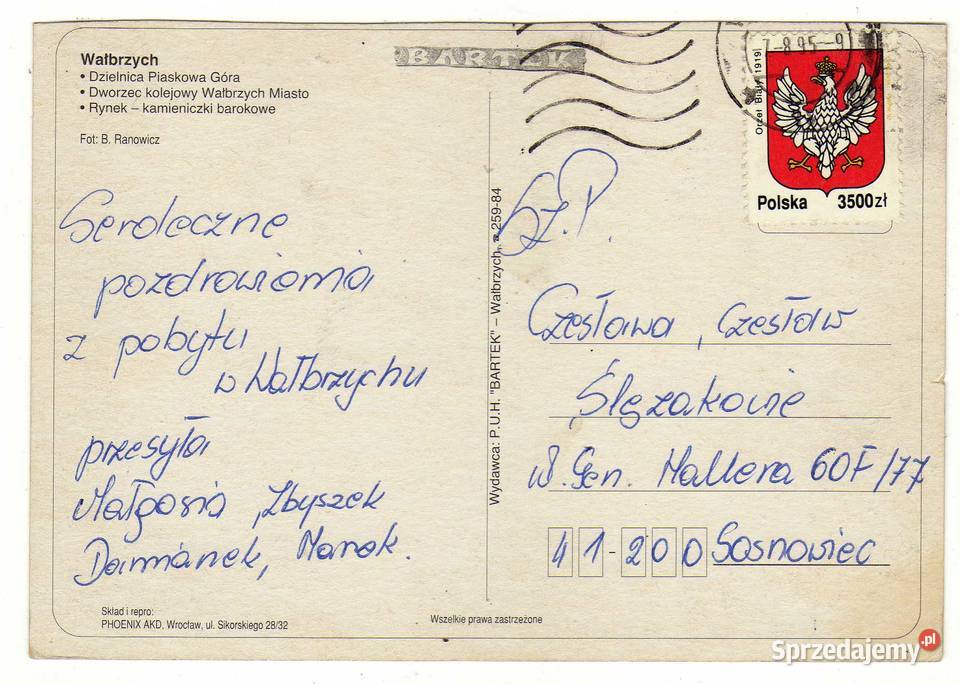 Wałbrzych
• Dzielnica Piaskowa Góra
• Dworzec kolejowy Wałbrzych Miasto
• Rynek – kamieniczki barokowe
Fot: B. Ranowicz
BARTEK
7-8.95-9
Orzeł Biały 1919
Polska 3500zł
Serdeczne
pozdrowienia
z pobytu
w Wałbrzychu
przesyła
Małgosia, Zbyszek
Damianek, Marek.
Wydawca: P.U.H. "BARTEK" – Wałbrzych, 259-84
Sz.P.
Czesława, Czesław
Ślęzakowie
Gen. Hallera 60F/77
41-200 Sosnowiec
Skład i repro:
PHOENIX AKD, Wrocław, ul. Sikorskiego 28/32
Wszelkie prawa zastrzeżone
Sprzedajemy.pl